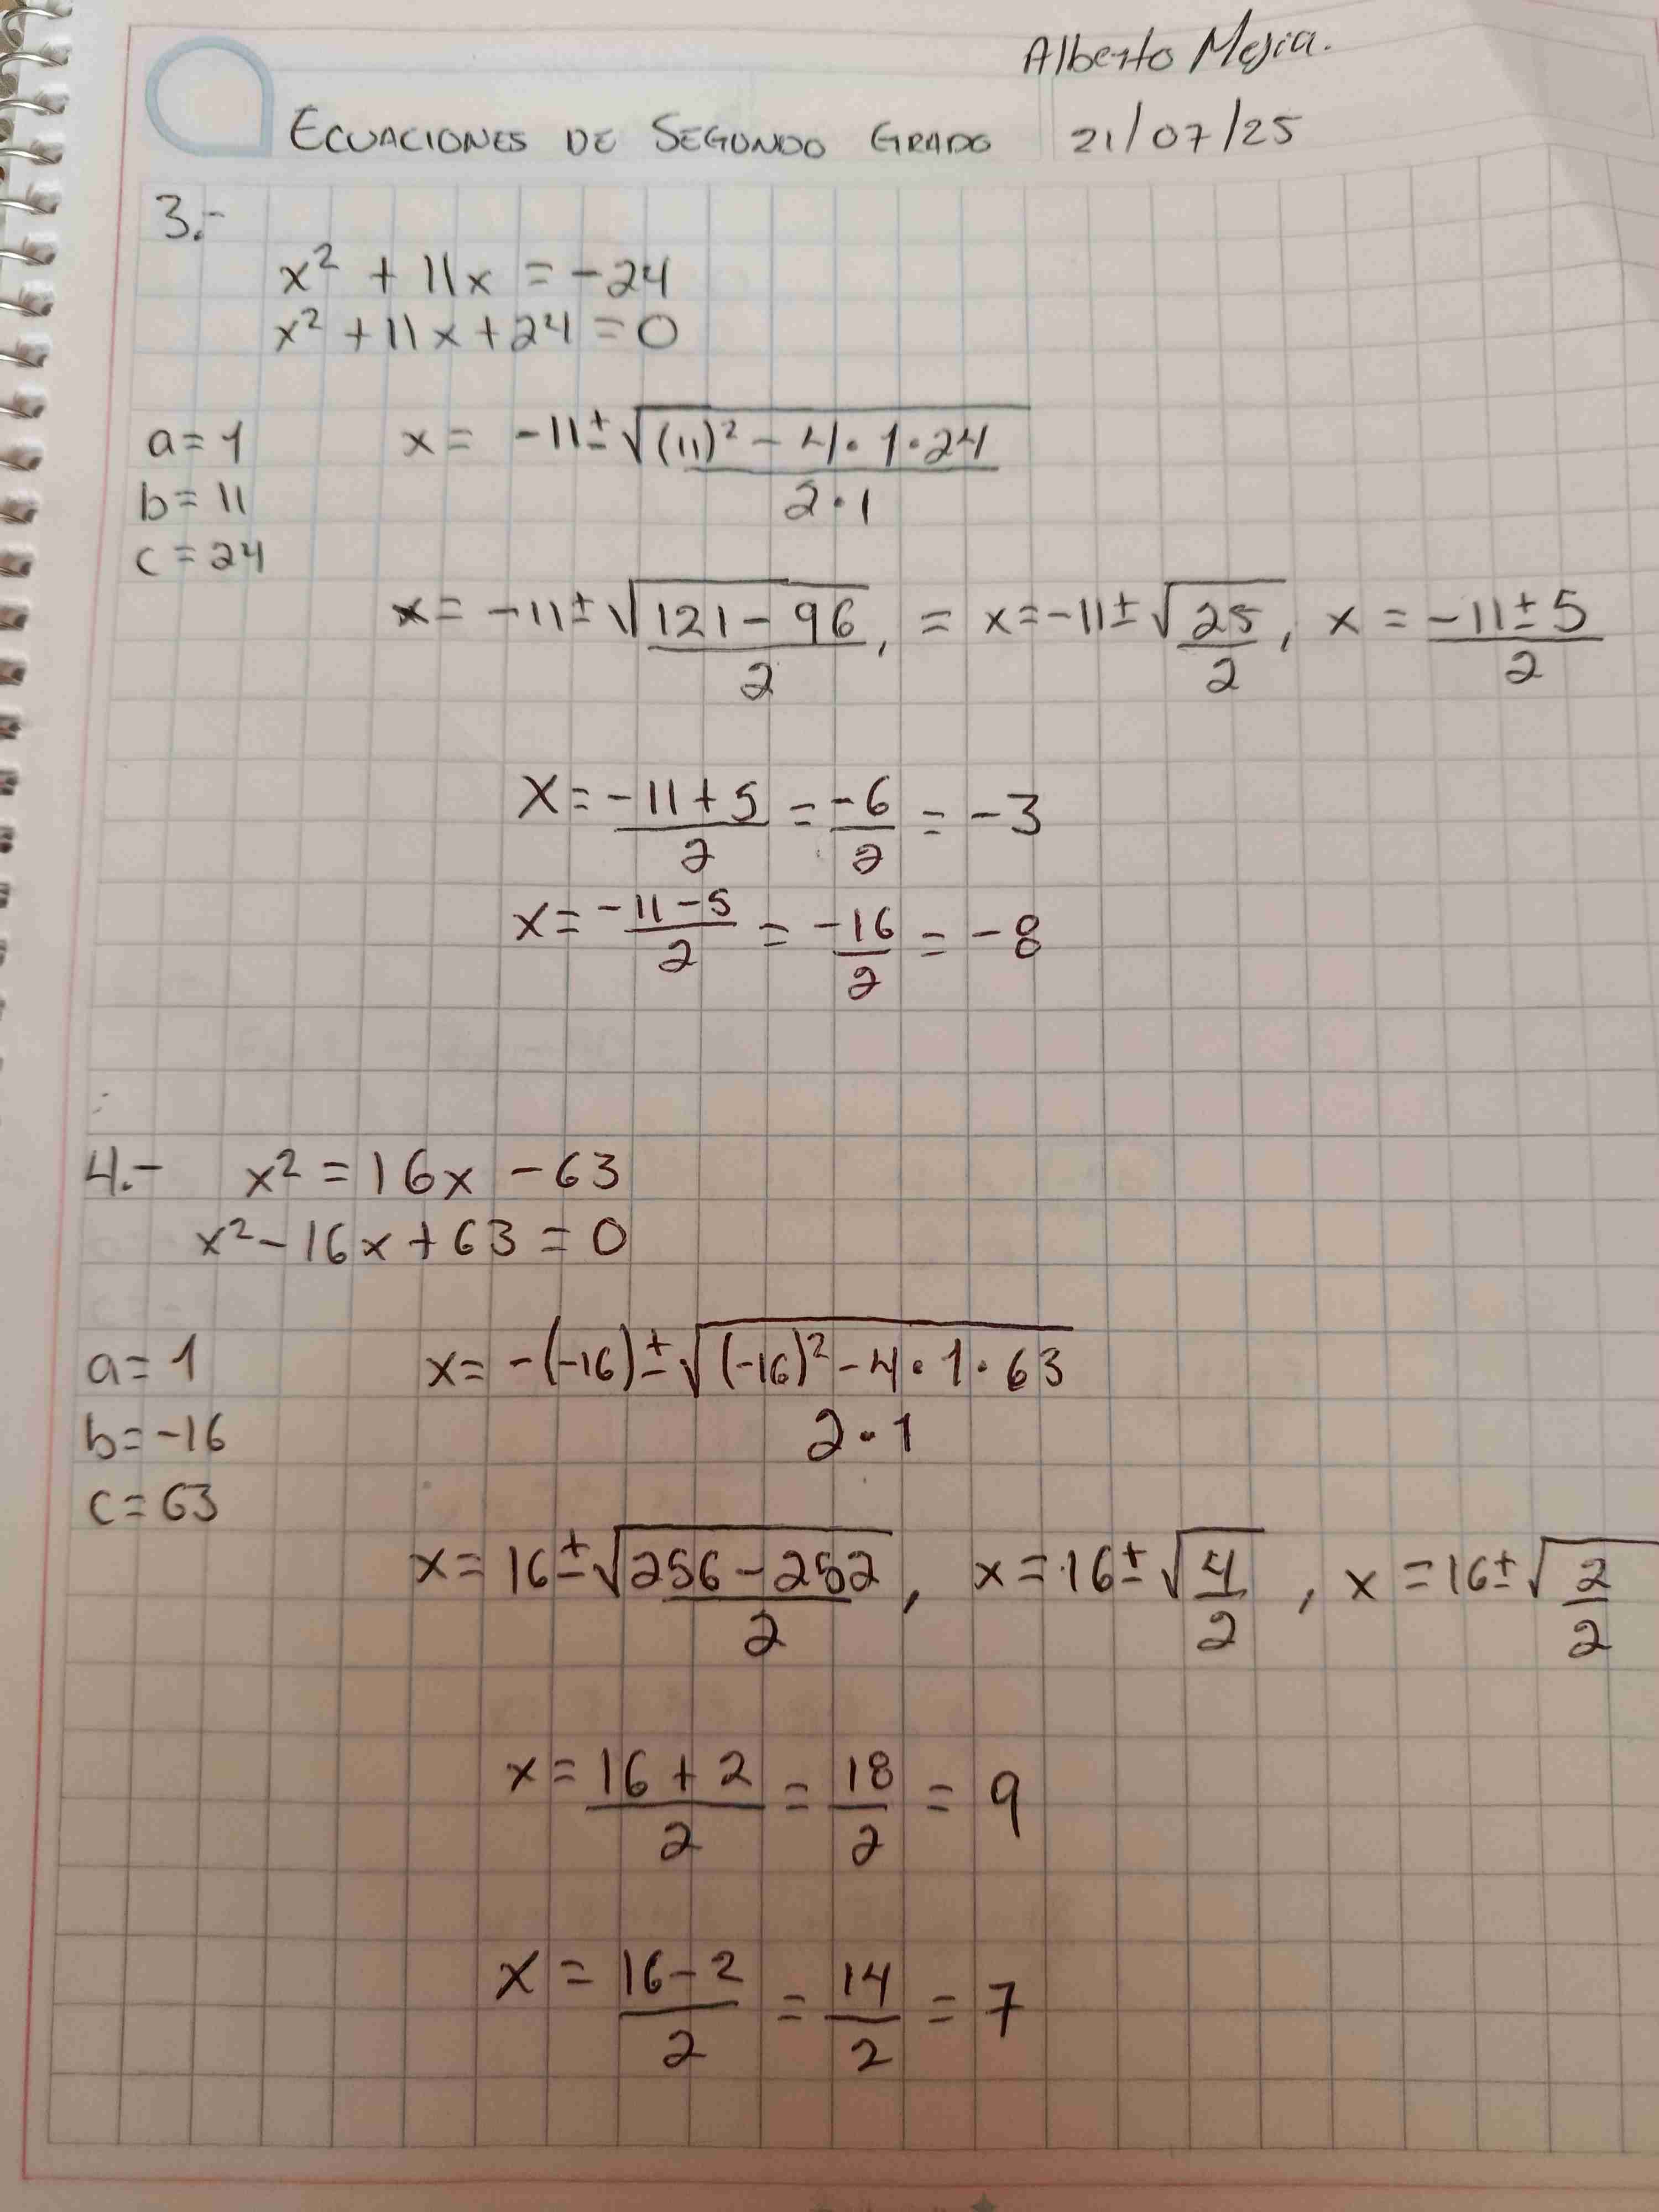 Alberto Mejia.
ECUACIONES DE SEGUNDO GRADO 21/07/25
3.-
x² + 11x = -24
x² + 11x + 24 = 0
a = 1
b = 11
c = 24
x = -11 ± √(11)² - 4 · 1 · 24
2 · 1
x = -11 ± √121 - 96, = x = -11 ± √25, x = -11 ± 5
2 2 2
x = -11 + 5 = -6 = -3
2 2
x = -11 - 5 = -16 = -8
2 2
4.- x² = 16x - 63
x² - 16x + 63 = 0
a = 1
b = -16
c = 63
x = -(-16) ± √(-16)² - 4 · 1 · 63
2 · 1
x = 16 ± √256 - 252, x = 16 ± √4, x = 16 ± √2
2 2 2
x = 16 + 2 = 18 = 9
2 2
x = 16 - 2 = 14 = 7
2 2